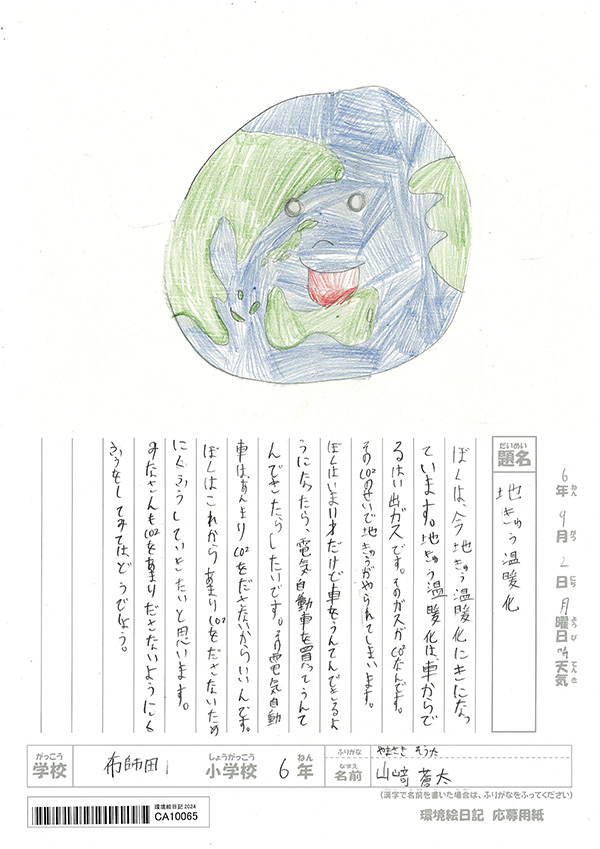 6年 9月 2日 月曜日 天気
ねん がつ にち ようび てんき
だいめい
題名
地きゅう温暖化
ぼくは、今地きゅう温暖化にきになっ
ています。地きゅう温暖化は車からで
るはい出ガスです。そのガスがCO²なんです。
そのCO²のせいで地きゅうがやられてしまいます。
ぼくはいま11才だけど車をうんてんできるよ
うになったら、電気自動車を買ってうんて
んできたらしたいです。その電気自動
車は、あんまりCO²をださないからいいんです。
ぼくはこれからあまりCO²をださないため
にくふうしていきたいと思います。
みなさんもCO²をあまりださないようにく
ふうをしてみてはどうでしょう。
がっこう
学校
布師田
しょうがっこう
小学校
6
ねん
年
ふりがな
やまざき そうた
なまえ
名前
山﨑 蒼太
(漢字で名前を書いた場合は、ふりがなをふってください)
環境絵日記 2024
CA10065
環境絵日記 応募用紙